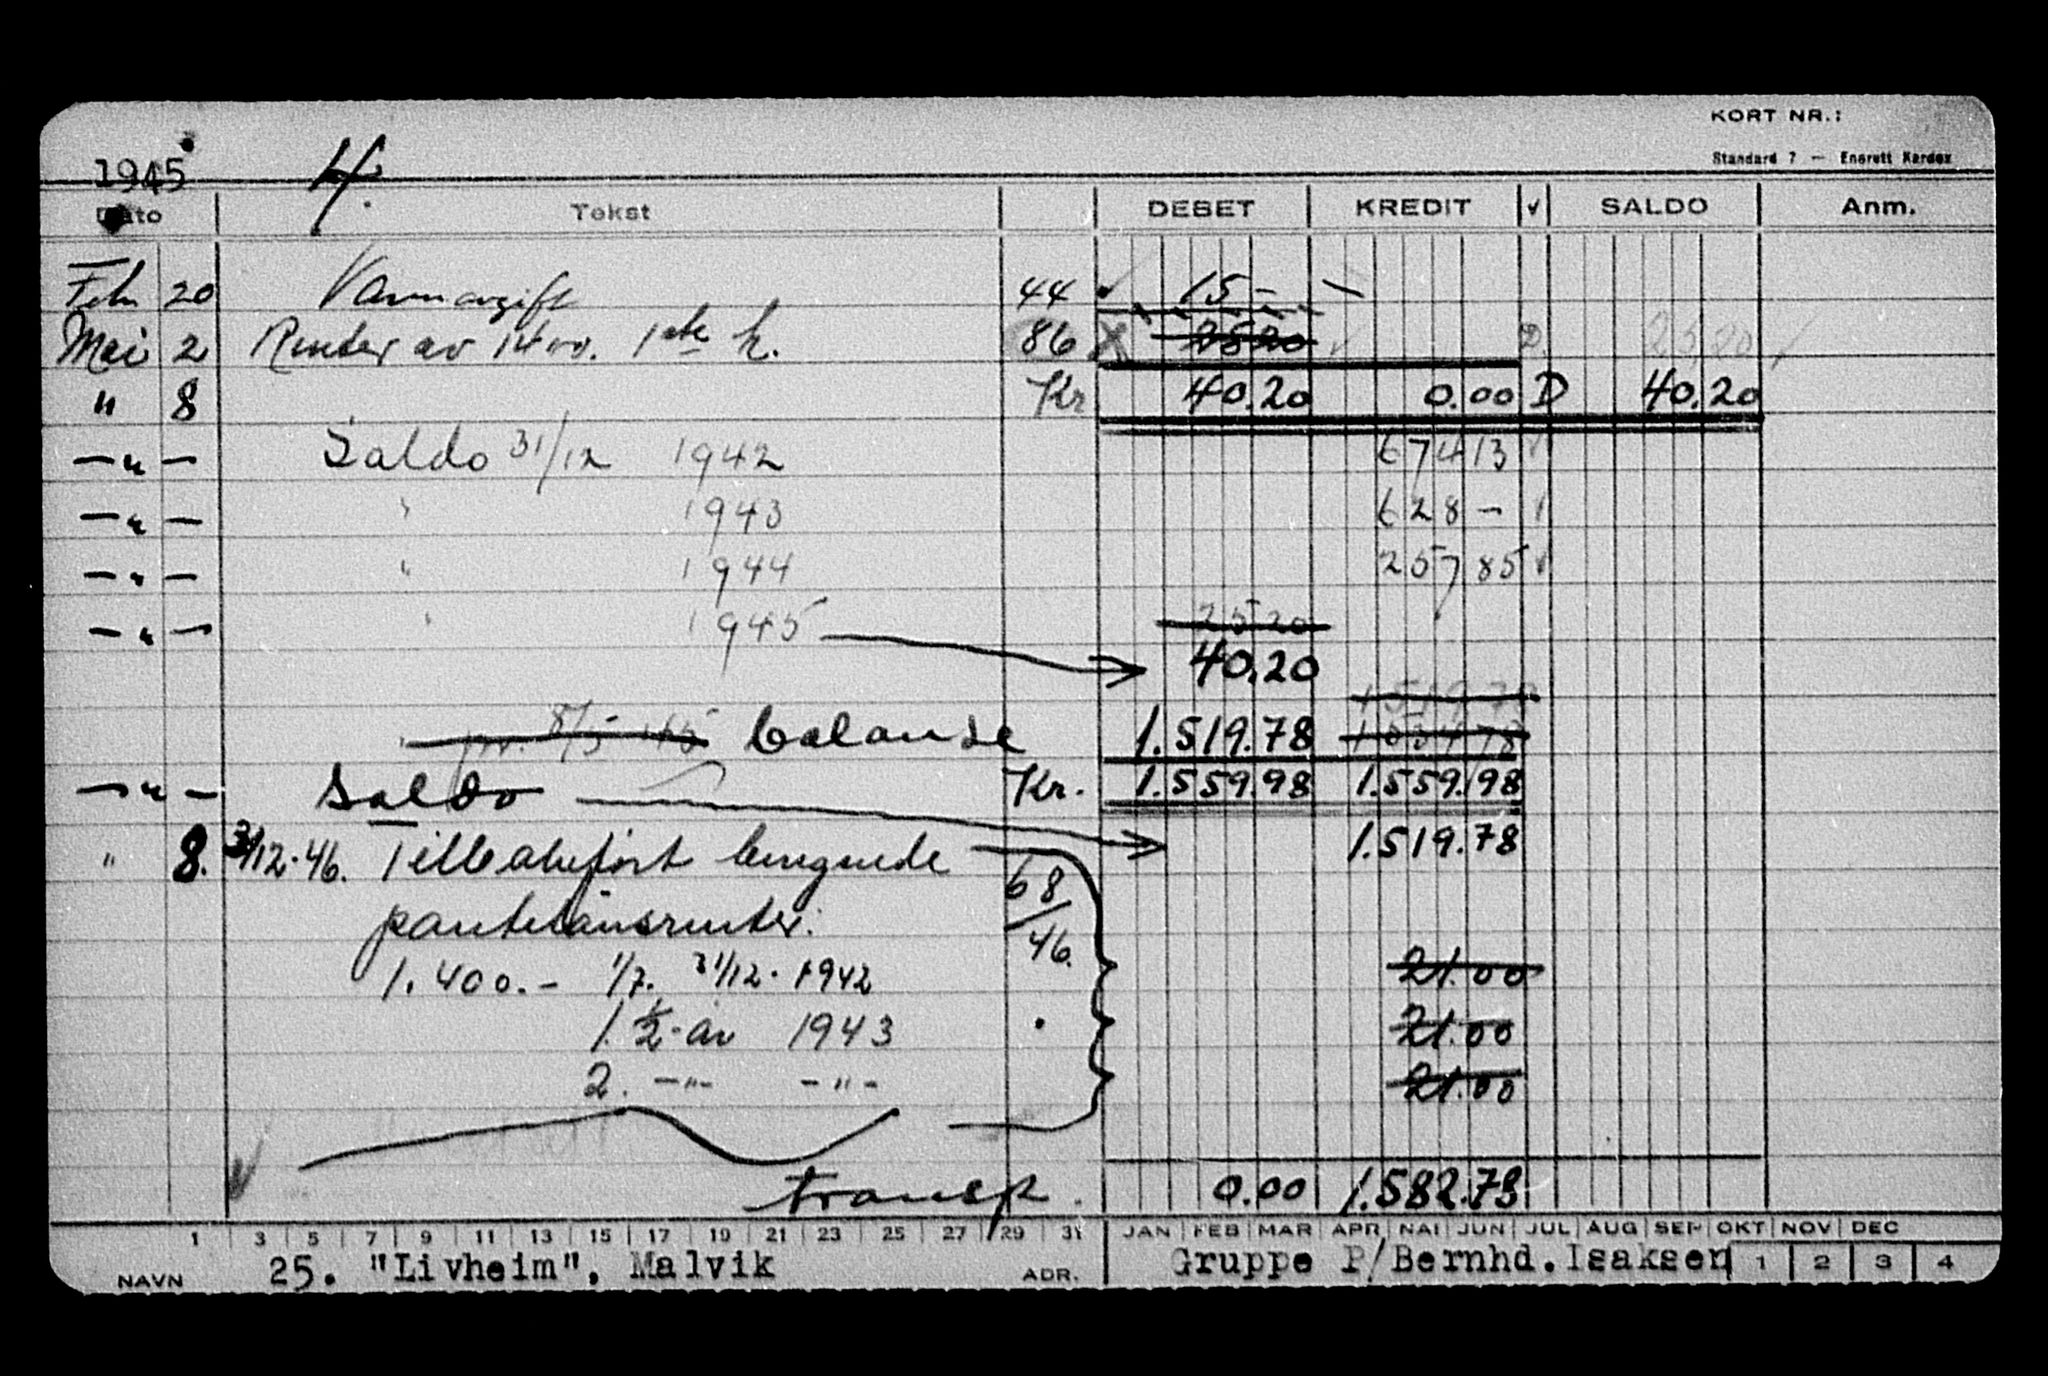 KORT NR.:
Standard 7 — Enerett Kardex
1945 4.
Dato Tekst DEBET KREDIT √ SALDO Anm.
Feb 20 Vannavgift 44 15 -
Mai 2 Renter av 1400. 1ste h. 86 25 20 D. 25,20
" 8 Kr 40.20 0.00 D 40.20
—"— Saldo 31/12 1942 674 13
—"— " 1943 628 -
—"— " 1944 257 85
—"— " 1945 25 20
40.20
1519.78
pr. 8/5 45 balanse 1.519.78 1534 78
—"— Saldo Kr. 1.559.98 1.559.98
" 8. 31/12.46. Tilbakeført beregnede 1.519.78
pantelånsrenter. 68/46.
1.400.- 1/7. 31/12. 1942 21.00
1. ½-år 1943 21.00
2. —"— —"— 21.00
transp. 0.00 1.582.78
1 3 5 7 9 11 13 15 17 19 21 23 25 27 29 31 JAN FEB MAR APR MAI JUN JUL AUG SEP OKT NOV DEC
NAVN 25. "Livheim", Malvik ADR. Gruppe P/Bernhd.Isaksen 1 2 3 4